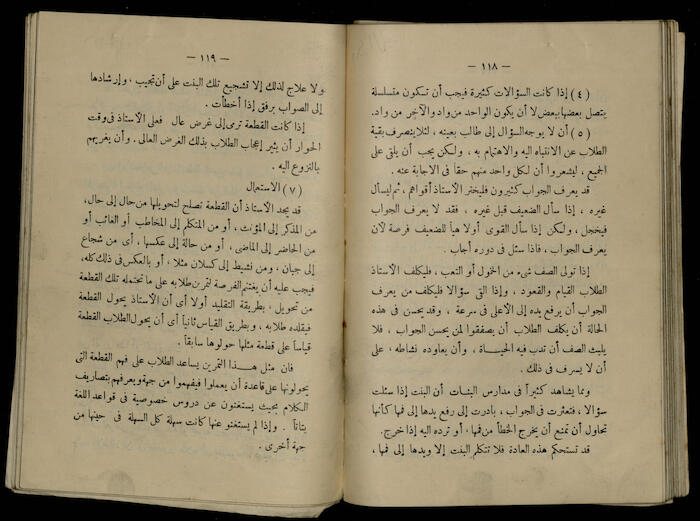 — ١١٨ —
( ٤ ) إذا كانت السؤالات كثيرة فيجب أن تكون متسلسلة
يتصل بعضها ببعض لا أن يكون الواحد من واد والآخر من واد.
( ٥ ) أن لا يوجه السؤال إلى طالب بعينه ، لئلا ينصرف بقية
الطلاب عن الانتباه اليه والاهتمام به ، ولكن يجب أن يلقى على
الجميع ، ليشعروا أن لكل واحد منهم حقاً في الاجابة عنه .
قد يعرف الجواب كثيرون فليختر الأستاذ أقواهم ، ثم ليسأل
غيره ، إذا سأل الضعيف قبل غيره ، فقد لا يعرف الجواب
فيخجل ، ولكن إذا سأل القوى أولا هيأ للضعيف فرصة لأن
يعرف الجواب ، فاذا سئل في دوره أجاب .
إذا تولى الصف شيء من الخمول أو التعب ، فليكلف الأستاذ
الطلاب القيام والقعود ، وإذا القى سؤالا فليكلف من يعرف
الجواب أن يرفع يده إلى الأعلى في سرعة ، وقد يحسن في هذه
الحالة أن يكلف الطلاب أن يصفقوا لمن يحسن الجواب ، فلا
يلبث الصف أن تدب فيه الحيـاة ، وأن يعاوده نشاطه ، على
أن لا يسرف في ذلك .
ومما يشاهد كثيراً في مدارس البنـات أن البنت إذا سئلت
سؤالا ، فتعثرت في الجواب ، بادرت إلى رفع يدها إلى فمها كأنها
تحاول أن تمنع أن يخرج الخطأ من فمها ، أو ترده اليه إذا خرج .
قد تستحكم هذه العادة فلا تتكلم البنت إلا ويدها إلى فمها ،
— ١١٩ —
ولا علاج لذلك إلا تشجيع تلك البنت على أن تجيب ، وإرشادها
إلى الصواب برفق إذا أخطأت .
إذا كانت القطعة ترمى إلى غرض عال فعلى الأستاذ في وقت
الحوار أن يثير إعجاب الطلاب بذلك الغرض العالى . وأن يغريهم
بالنزوع اليه .
( ٧ ) الاستعمال
قد يجد الأستاذ أن القطعة تصلح لتحويلها من حال إلى حال،
من المذكر إلى المؤنث ، أو من المتكلم إلى المخاطب أو الغائب أو
من الحاضر إلى الماضى ، أو من حالة إلى عكسها ، أى من شجاع
إلى جبان ، ومن نشيط إلى كسلان مثلا ، أو بالعكس في ذلك كله،
فيجب عليه أن يغتنم الفرصة لتمرن طلابه على ما تحتمله تلك القطعة
من تحويل ، بطريقة التقليد أولا أى أن الأستاذ يحول القطعة
فيقلده طلابه ، وبطريق القياس ثانياً أى أن يحول الطلاب القطعة
قياساً على قطعة مثلها حولوها سابقاً .
فان مثل هـذا التمرين يساعد الطلاب على فهم القطعة التى
يحولونها على قاعدة أن يعملوا فيفهموا من جهة ويعرفهم بتصاريف
الكلام بحيث يستغنون عن دروس خصوصية في قواعد اللغة
بتاتاً . وإذا لم يستغنو عنها كانت سهلة كل السهلة في حينها من
جهة أخرى .